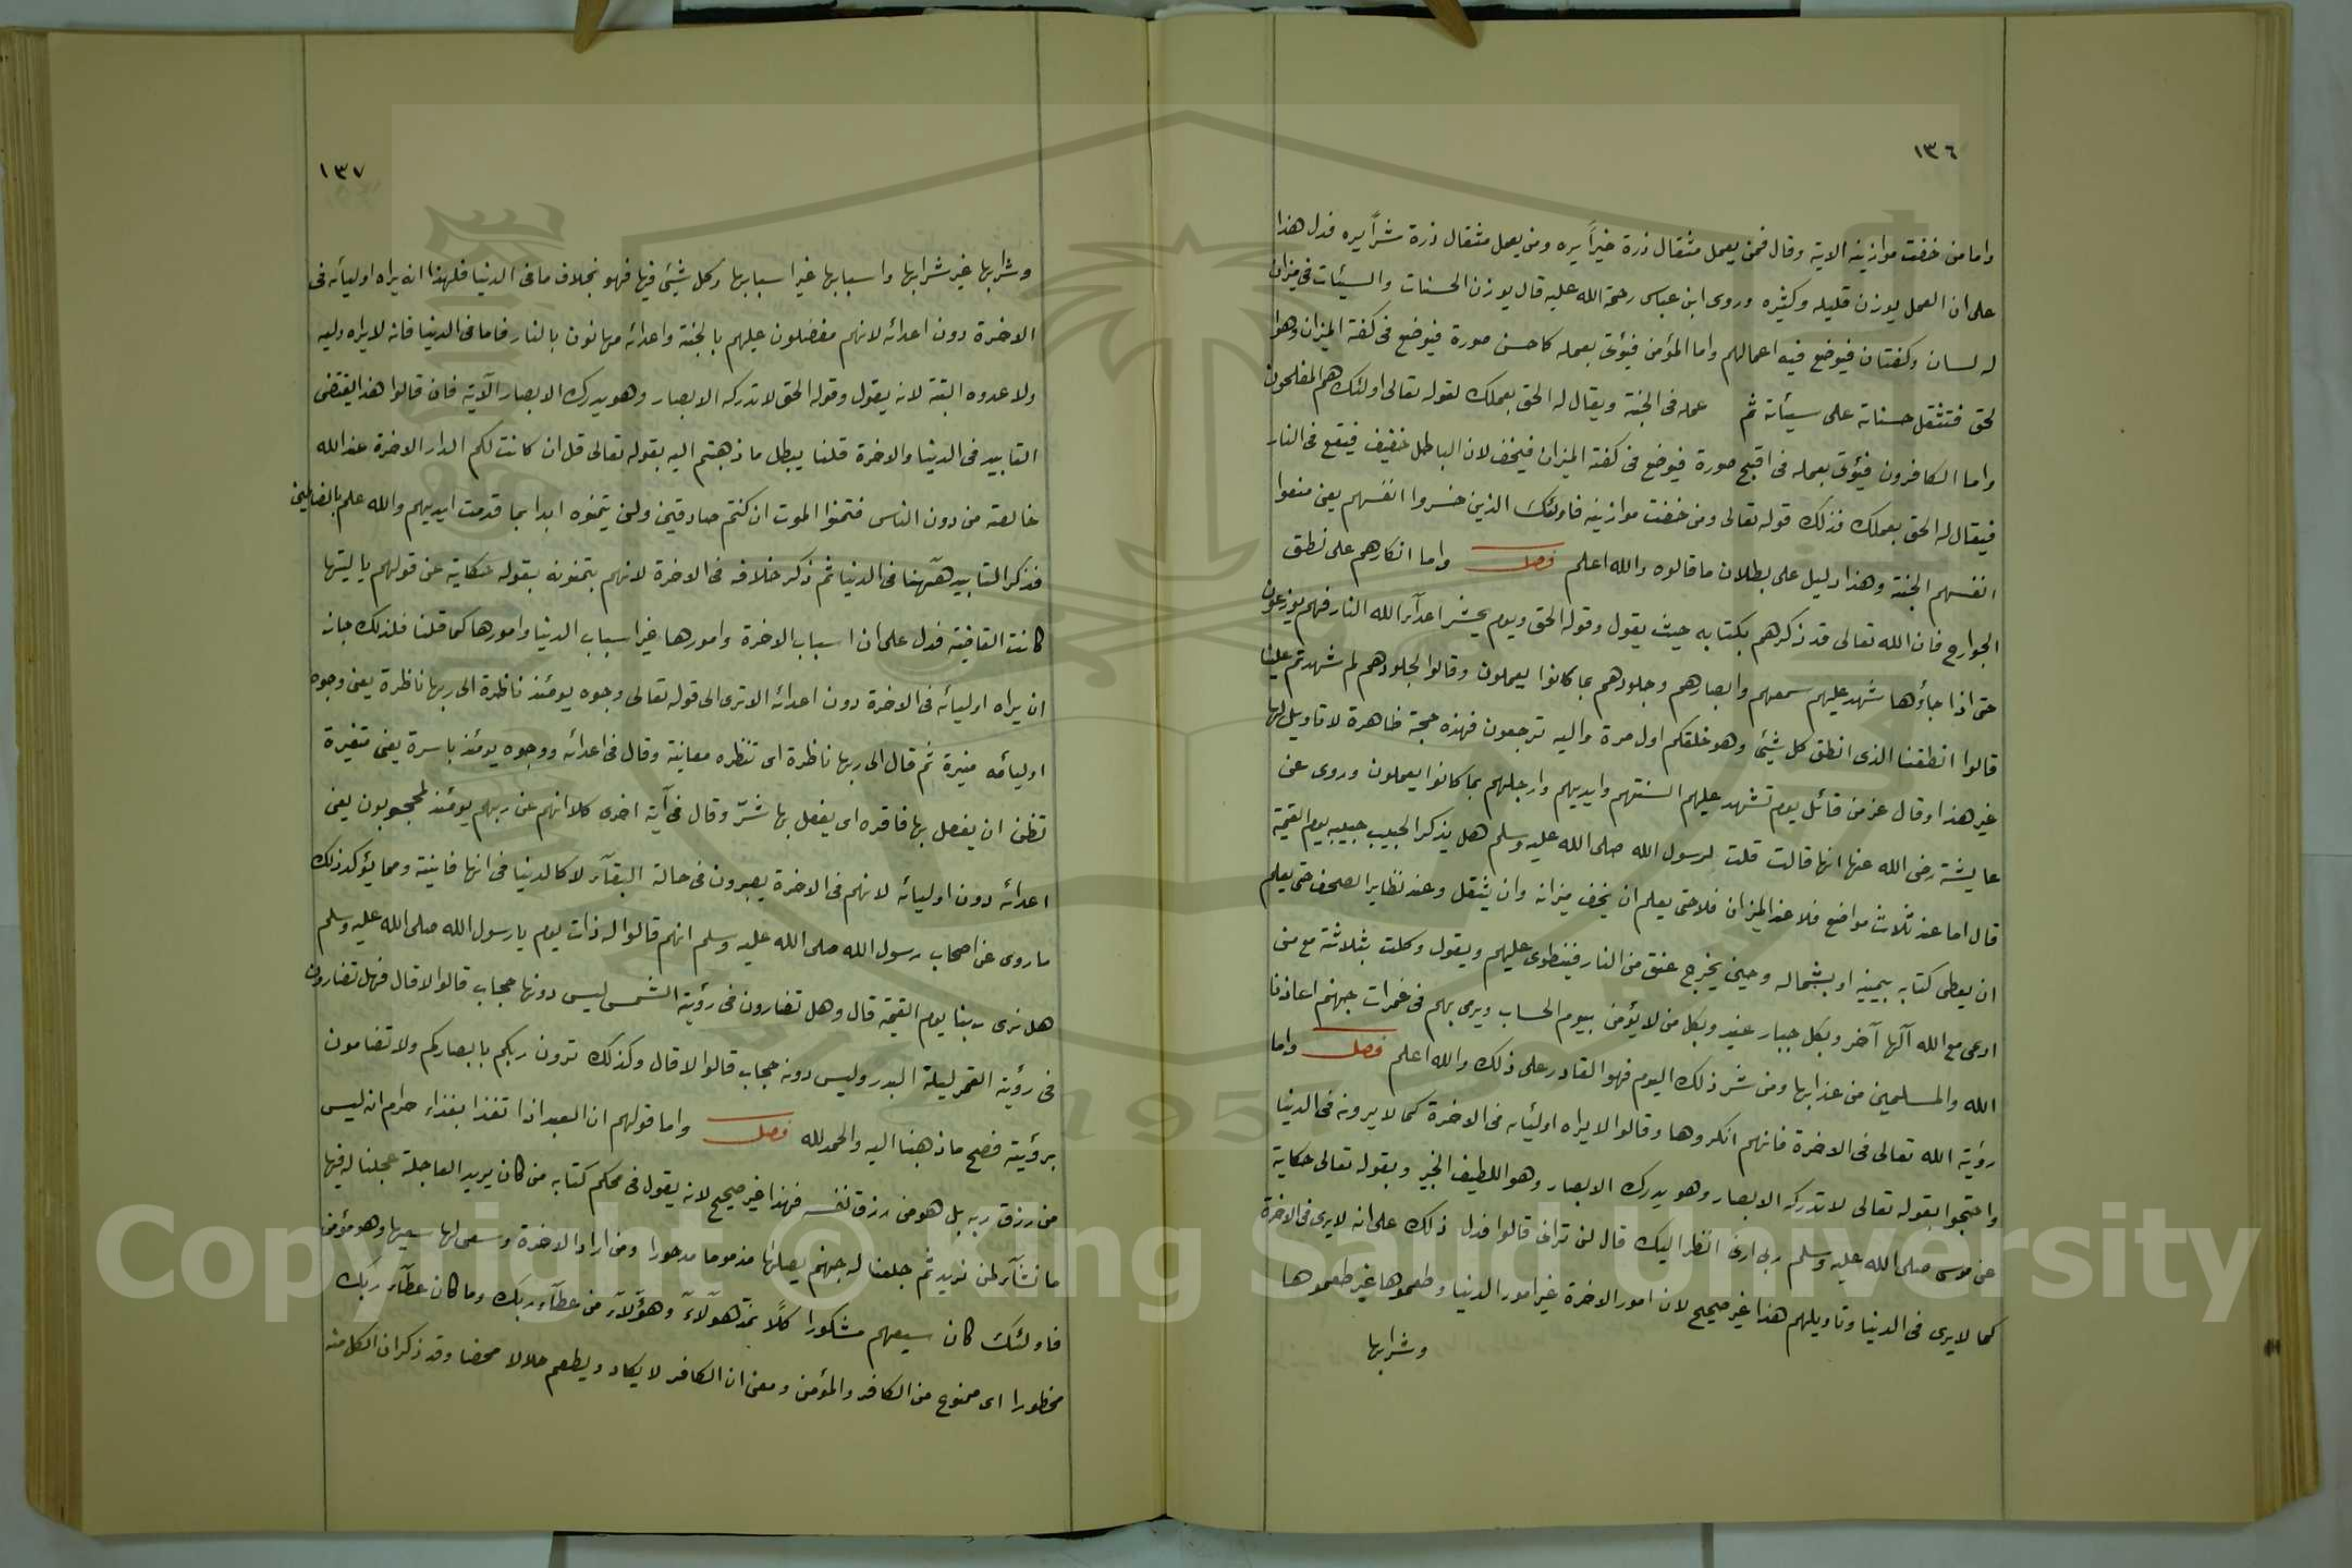 ١٣٦
واما من خفت موازينه الاية وقال فمن يعمل مثقال ذرة خيراً يره ومن يعمل مثقال ذرة شراً يره فدل هذا
على ان العمل يوزن قليله وكثيره وروى ابن عباس رحمة الله عليه قال يوزن الحسنات والسيئات في ميزان
له لسان وكفتان فيوضع فيه اعمالهم واما المؤمن فيؤتى بعمله كاحسن صورة فيوضع في كفة الميزان وهو
لحق فتثقل حسناته على سيئاته ثم عمله في الجنة ويقال له الحق بعملك لقوله تعالى اولئك هم المفلحون
واما الكافرون فيؤتى بعمله في اقبح صورة فيوضع في كفة الميزان فيخف لان الباطل خفيف فيقع في النار
فيقال له الحق بعملك فذلك قوله تعالى ومن خفت موازينه فاولئك الذين خسروا انفسهم يعني منعوا
انفسهم الجنة وهذا دليل على بطلان ما قالوه والله اعلم فصل واما انكارهم على نطق
الجوارح فان الله تعالى قد ذكرهم بكتابه حيث يقول وقوله الحق ويوم يحشر اعدآء الله النار فهم يوزعون
حتى اذا جاؤها شهد عليهم سمعهم وابصارهم وجلودهم بما كانوا يعملون وقالوا لجلودهم لم شهدتم علينا
قالوا انطقنا الذى انطق كل شيئ وهو خلقكم اول مرة واليه ترجعون فهذه حجة ظاهرة لا تاويل لها
غير هذا وقال عز من قائل يوم تشهد عليهم السنتهم وايديهم وارجلهم بما كانوا يعملون وروى عن
عايشة رضى الله عنها انها قالت قلت لرسول الله صلى الله عليه وسلم هل يذكر الحبيب حبيبه يوم القيمة
قال اما عند ثلاث مواضع فلا عند الميزان فلا حتى يعلم ان يخف ميزانه وان يثقل وعند نظاير الصحف حتى يعلم
ان يعطى كتابه بيمينه او بشماله وحين يخرج عنق من النار فينطوى عليهم ويقول وكلت بثلاثة مع من
ادعى مع الله آلها آخر وبكل جبار عنيد وبكل من لا يؤمن بيوم الحساب ويرمى بهم في غمرات جهنم اعاذنا
الله والمسلمين من عذابها ومن شر ذلك اليوم فهو القادر على ذلك والله اعلم فصل واما
رؤية الله تعالى في الاخرة فانهم انكروها وقالوا لا يراه اوليائه في الاخرة كما لا يرونه في الدنيا
واحتجوا بقوله تعالى لا تدركه الابصار وهو يدرك الابصار وهو اللطيف الخبير وبقوله تعالى حكاية
عن موسى صلى الله عليه وسلم ربى ارنى انظر اليك قال لن ترانى قالوا فدل ذلك على انه لا يرى في الاخرة
كما لا يرى في الدنيا وتاويلهم هذا غير صحيح لان امور الاخرة غير امور الدنيا وطعموها غير طعموها
وشرابها
١٣٧
وشرابها غير شرابها واسبابها غير اسبابها وكل شيئ فيها فهو بخلاف ما في الدنيا فلهذا انه يراه اوليائه في
الاخرة دون اعدائه لانهم مفضلون عليهم بالجنة واعدائه مهانون بالنار فاما في الدنيا فانه لا يراه وليه
ولا عدوه البتة لانه يقول وقوله الحق لا تدركه الابصار وهو يدرك الابصار الآية فان قالوا هذا يقتضى
التابيد في الدنيا والاخرة قلنا يبطل ما ذهبتم اليه بقوله تعالى قل ان كانت لكم الدار الاخرة عند الله
خالصة من دون الناس فتمنوا الموت ان كنتم صادقين ولن يتمنوه ابدا بما قدمت ايديهم والله عليم بالظالمين
فذكر التابيد هٓهنا في الدنيا ثم ذكر خلافه في الاخرة لانهم يتمنونه بقوله حكاية عن قولهم يا ليتها
كانت القاضية فدل على ان اسباب الاخرة وامورها غير اسباب الدنيا وامورها كما قلنا فلذلك جاز
ان يراه اوليائه في الاخرة دون اعدائه الا ترى الى قوله تعالى وجوه يومئذ ناظرة الى ربها ناظرة يعنى وجوه
اوليائه منيرة ثم قال الى ربها ناظرة اى تنظره معاينة وقال في اعدائه ووجوه يومئذ باسرة يعنى متغيرة
تظن ان يفعل بها فاقره اى يفعل بها شرّ وقال في آية اخرى كلا انهم عن ربهم يومئذ لمحجوبون يعنى
اعدائه دون اوليائه لانهم في الاخرة يصيرون في حالة البقآء لا كالدنيا في انها فانية ومما يؤكد ذلك
ما روى عن اصحاب رسول الله صلى الله عليه وسلم انهم قالوا له ذات يوم يا رسول الله صلى الله عليه وسلم
هل نرى ربنا يوم القيمة قال وهل تضارون في رؤية الشمس ليس دونها حجاب قالوا لا قال فهل تضارون
في رؤية القمر ليلة البدر وليس دونه حجاب قالوا لا قال وكذلك ترون ربكم بابصاركم ولا تضامون
برؤيته فصح ما ذهبنا اليه والحمد لله فصل واما قولهم ان العبد اذا تغذا بغذاء حرام انه ليس
من رزق ربه بل هو من رزق نفسه فهذا غير صحيح لانه يقول في محكم كتابه من كان يريد العاجلة عجلنا له فيها
ما نشآء لمن نريد ثم جعلنا له جهنم يصلها مذموما مدحورا ومن اراد الاخرة وسعى لها سعيها وهو مؤمن
فاولئك كان سعيهم مشكورا كلاً نمدّ هٓولآء وهؤلآء من عطآء ربك وما كان عطآء ربك
محظورا اى ممنوع من الكافر والمؤمن ومعنى ان الكافر لا يكاد ويطعم حلالا محضا وقد ذكر ان الكل منه
Copyright © King Saud University
1957